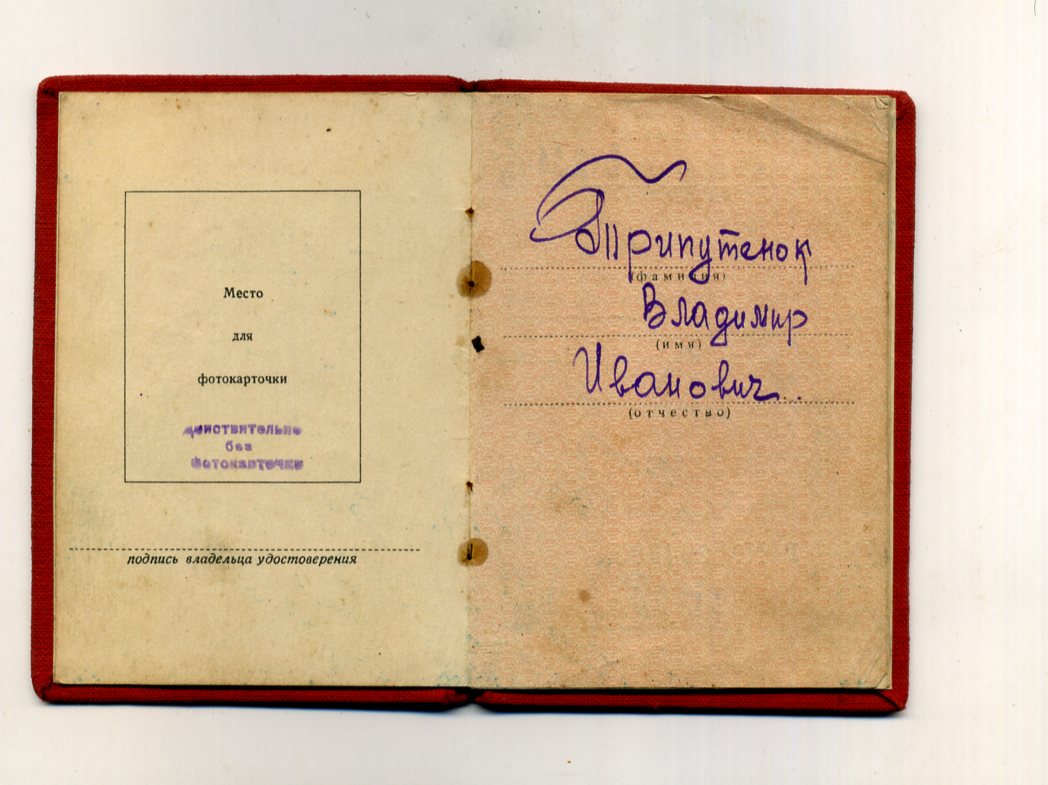 Место
для
фотокарточки
действительно
без
фотокарточки
подпись владельца удостоверения
Трипутенок
(фамилия)
Владимир
(имя)
Иванович
(отчество)